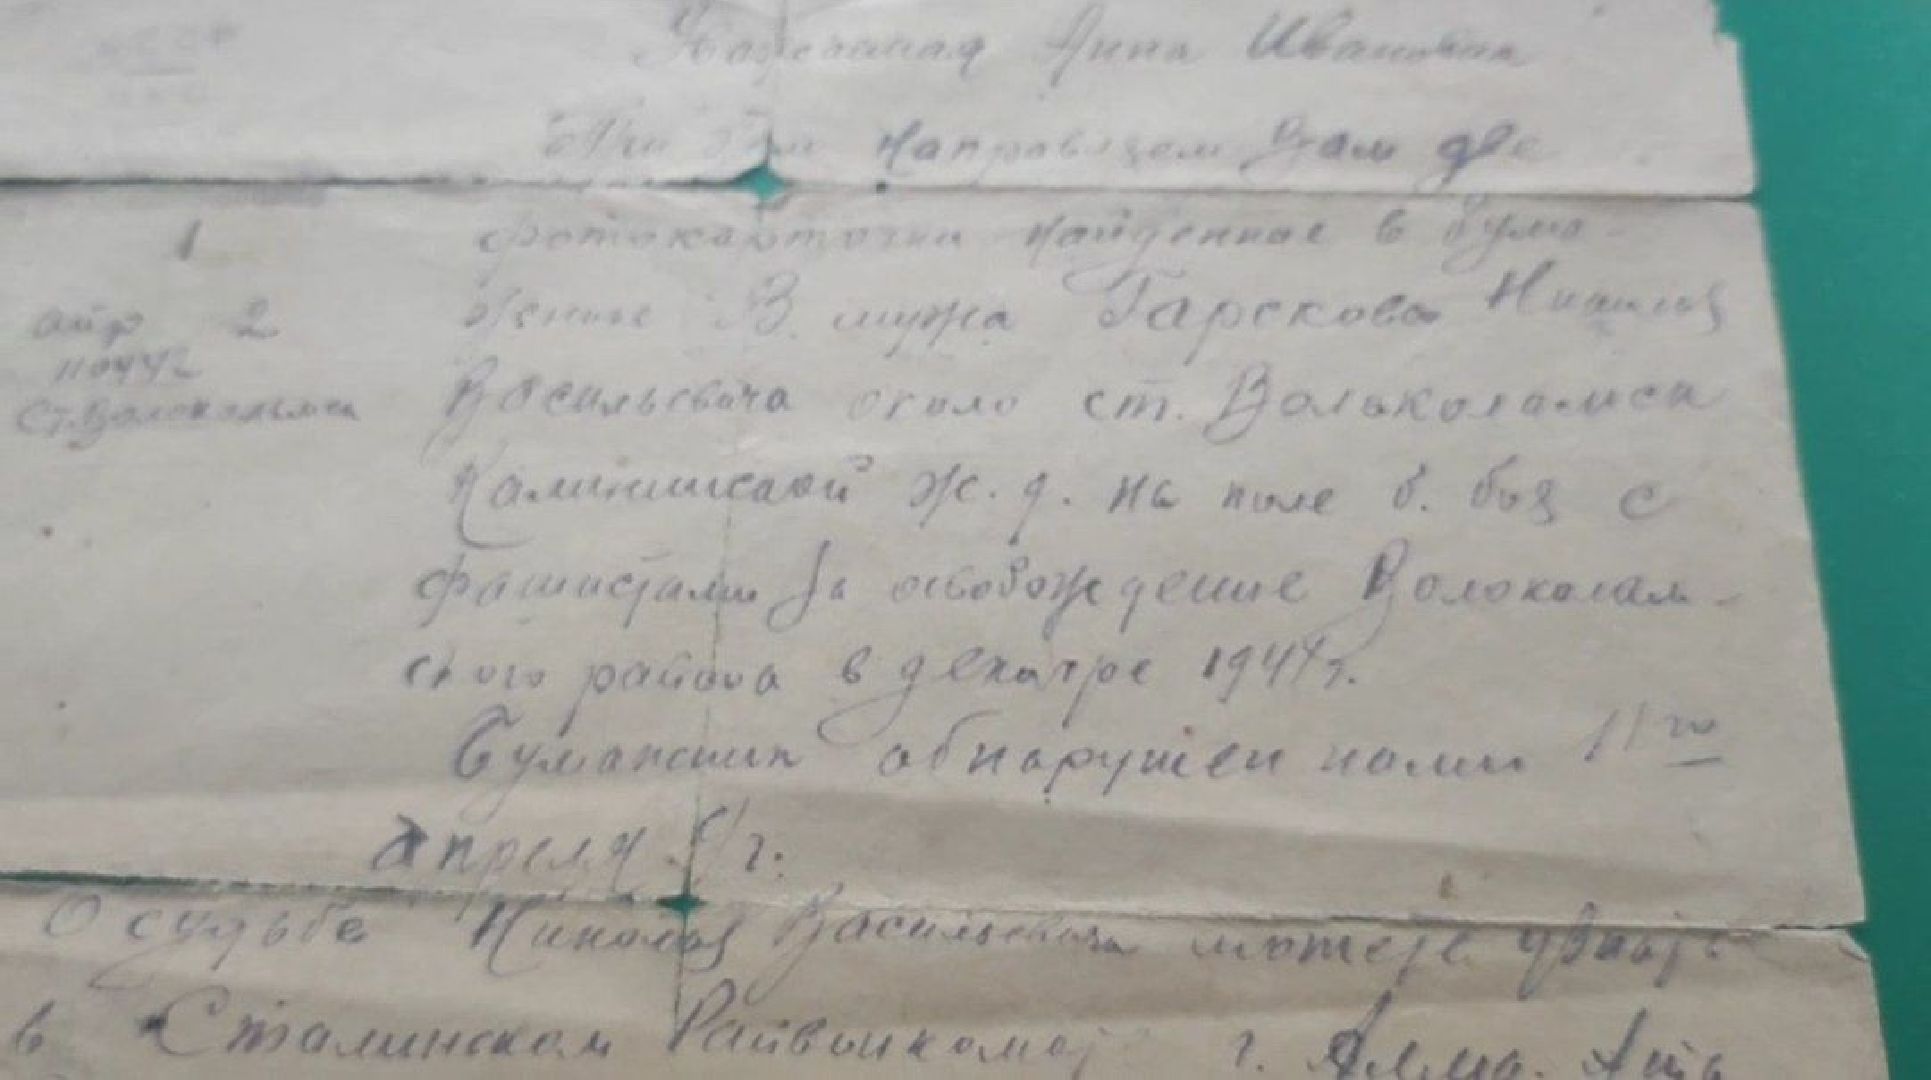 Уважаемая Анна Ивановна
При этом направляем Вам две
1 фотокарточки найденные в бума-
жнике В. мужа Гарскова Николая
2
Васильевича около ст. Волоколамск
ст. Волоколамск
Калининской ж. д. на поле б. боя с
фашистами за освобождение Волоколам-
ского района в декабре 1941 г.
Бумажник обнаружен нами 11го
апреля с/г.
О судьбе Николая Васильевича можете узнать
в Сталинском Райвоенкомат г. Алма-Ата